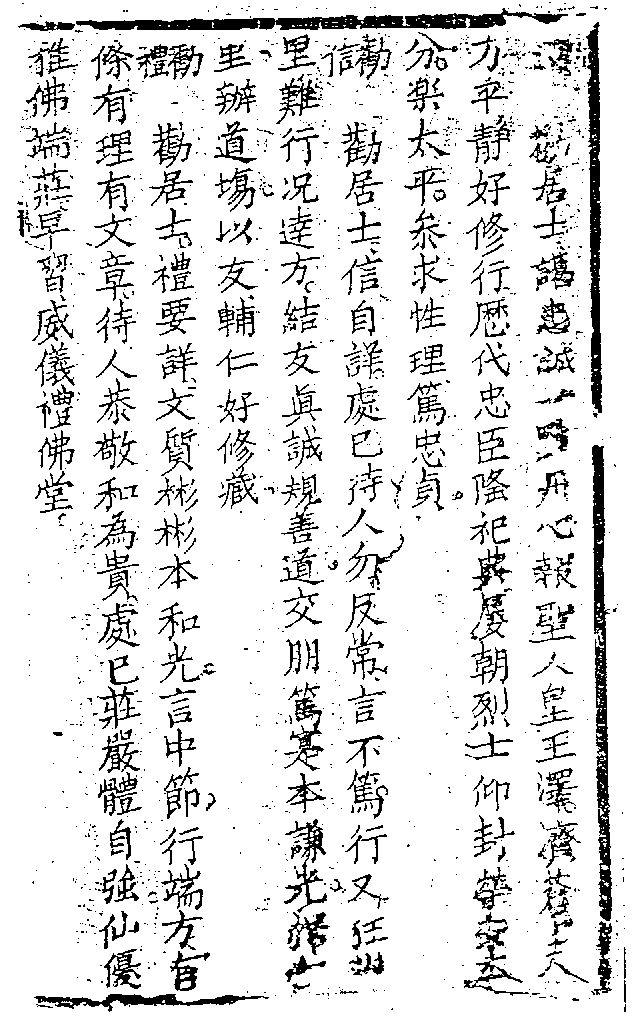 居士謁忠誠一時一用心報聖人皇王澤濟
力平静好修行歷代忠臣隆祀典屡朝烈士仰封
分樂太平叅求性理篤忠貞
勸信 勸居士信自詳處己待人勿反常言不篤行又狂
里難行况逹方結友眞誠規善道交朋篤寔本謙光
里辦道塲以友輔仁好修藏
勸禮 勸居士禮要詳文質彬彬本和光言中節行端方有
條有理有文章待人恭敬和為貴處己莊嚴體自強仙優
雅佛端莊早習威儀禮佛堂